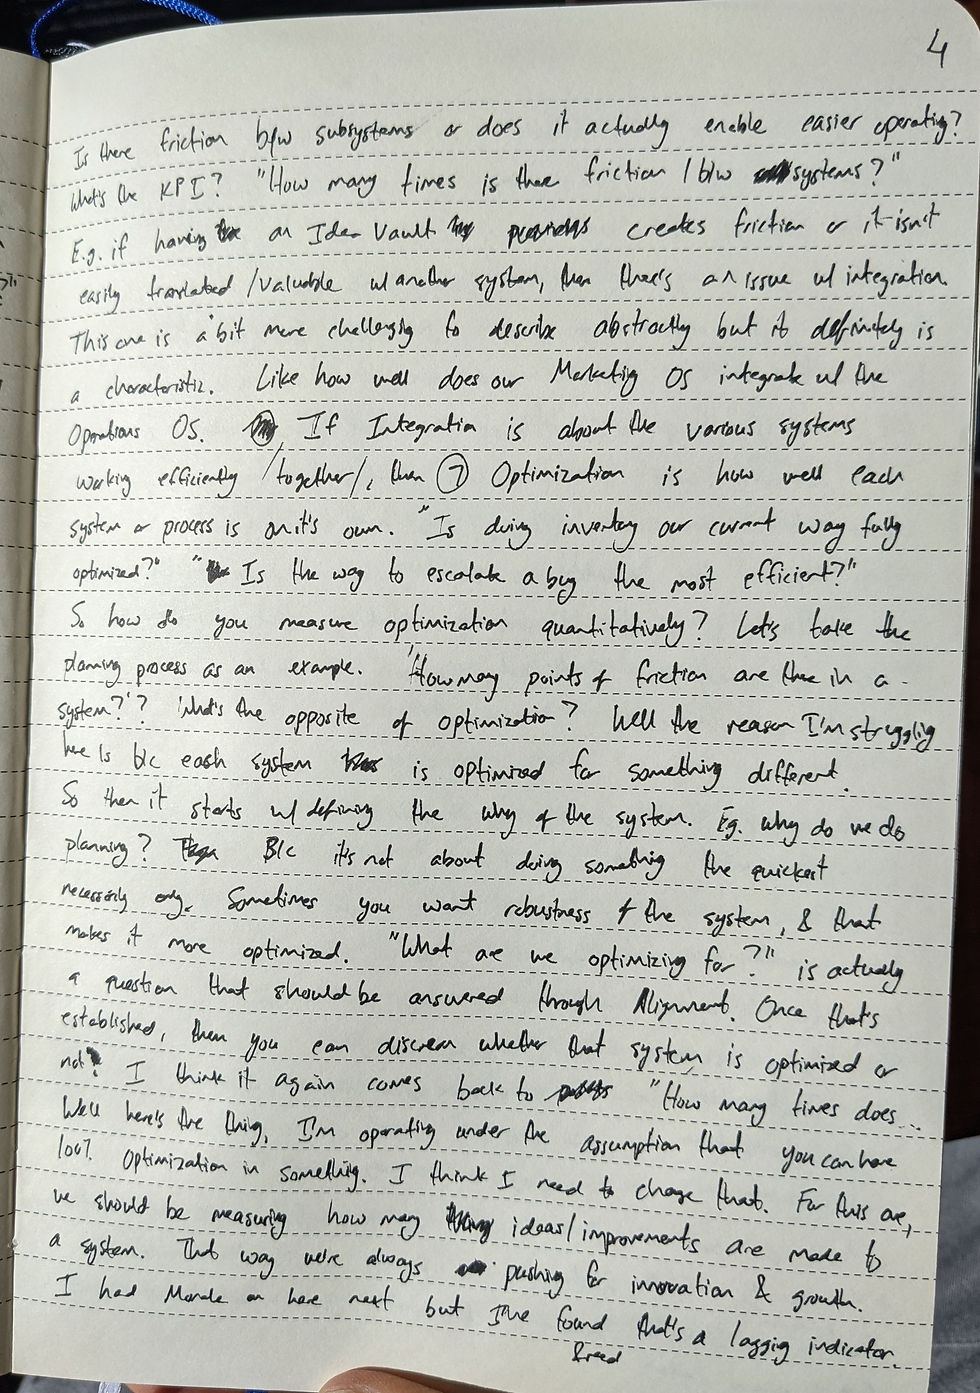 4
Is there friction b/w subsystems or does it actually enable easier operating?
What's the KPI? "How many times is there friction / b/w systems?"
E.g. if having an Idea Vault creates friction or it isn't
easily translated / valuable w/ another system, then there's an issue w/ integration.
This one is a bit more challenging to describe abstractly but it definitely is
a characteristic. Like how well does our Marketing OS integrate w/ the
Operations OS. If Integration is about the various systems
working efficiently /together/, then ⑦ Optimization is how well each
system or process is on it's own. "Is doing inventory our current way fully
optimized?" "Is the way to escalate a bug the most efficient?"
So how do you measure optimization quantitatively? Let's take the
planning process as an example. "How many points of friction are there in a
system?"? What's the opposite of optimization? Well the reason I'm struggling
here is b/c each system is optimized for something different.
So then it starts w/ defining the why of the system. Eg. Why do we do
planning? B/c it's not about doing something the quickest
necessarily only. Sometimes you want robustness of the system, & that
makes it more optimized. "What are we optimizing for?" is actually
a question that should be answered through Alignment. Once that's
established, then you can discern whether that system is optimized or
not. I think it again comes back to "How many times does...
Well here's the thing, I'm operating under the assumption that you can have
100% Optimization in something. I think I need to change that. For this one,
we should be measuring how many ideas/improvements are made to
a system. That way we're always pushing for innovation & growth.
I had Morale on here next but I've found that's a laggig indicator.